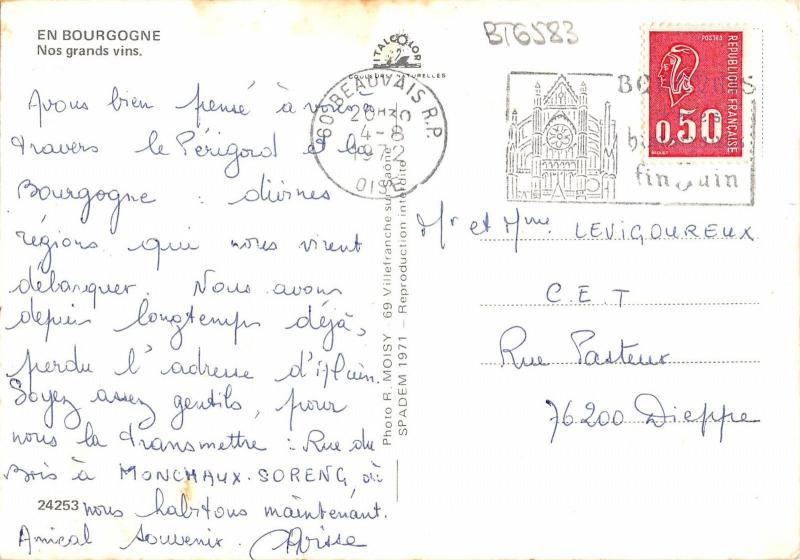 EN BOURGOGNE
Nos grands vins.
Avons bien pensé à vous à
travers le Périgord et la
Bourgogne : divines
régions qui nous virent
débarquer. Nous avons
depuis longtemps déjà,
perdu l'adresse d'Alain.
Soyez assez gentils, pour
nous la transmettre : Rue du
Bois à MONCHAUX-SORENG, où
nous habitons maintenant.
Amical souvenir.
24253
ITALCOLOR
COULEURS NATURELLES
Photo R. MOISY - 69 Villefranche sur Saône
SPADEM 1971 - Reproduction interdite
BT6583
60 BEAUVAIS R.P.
20H30
4-8
1972
OISE
fin juin
POSTES
REPUBLIQUE FRANÇAISE
0,50
BEQUET
Mr et Mme LEVIGOUREUX
C.E.T
Rue Pasteur
76200 Dieppe